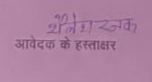 शैलेश रजक
आवेदक के हस्ताक्षर